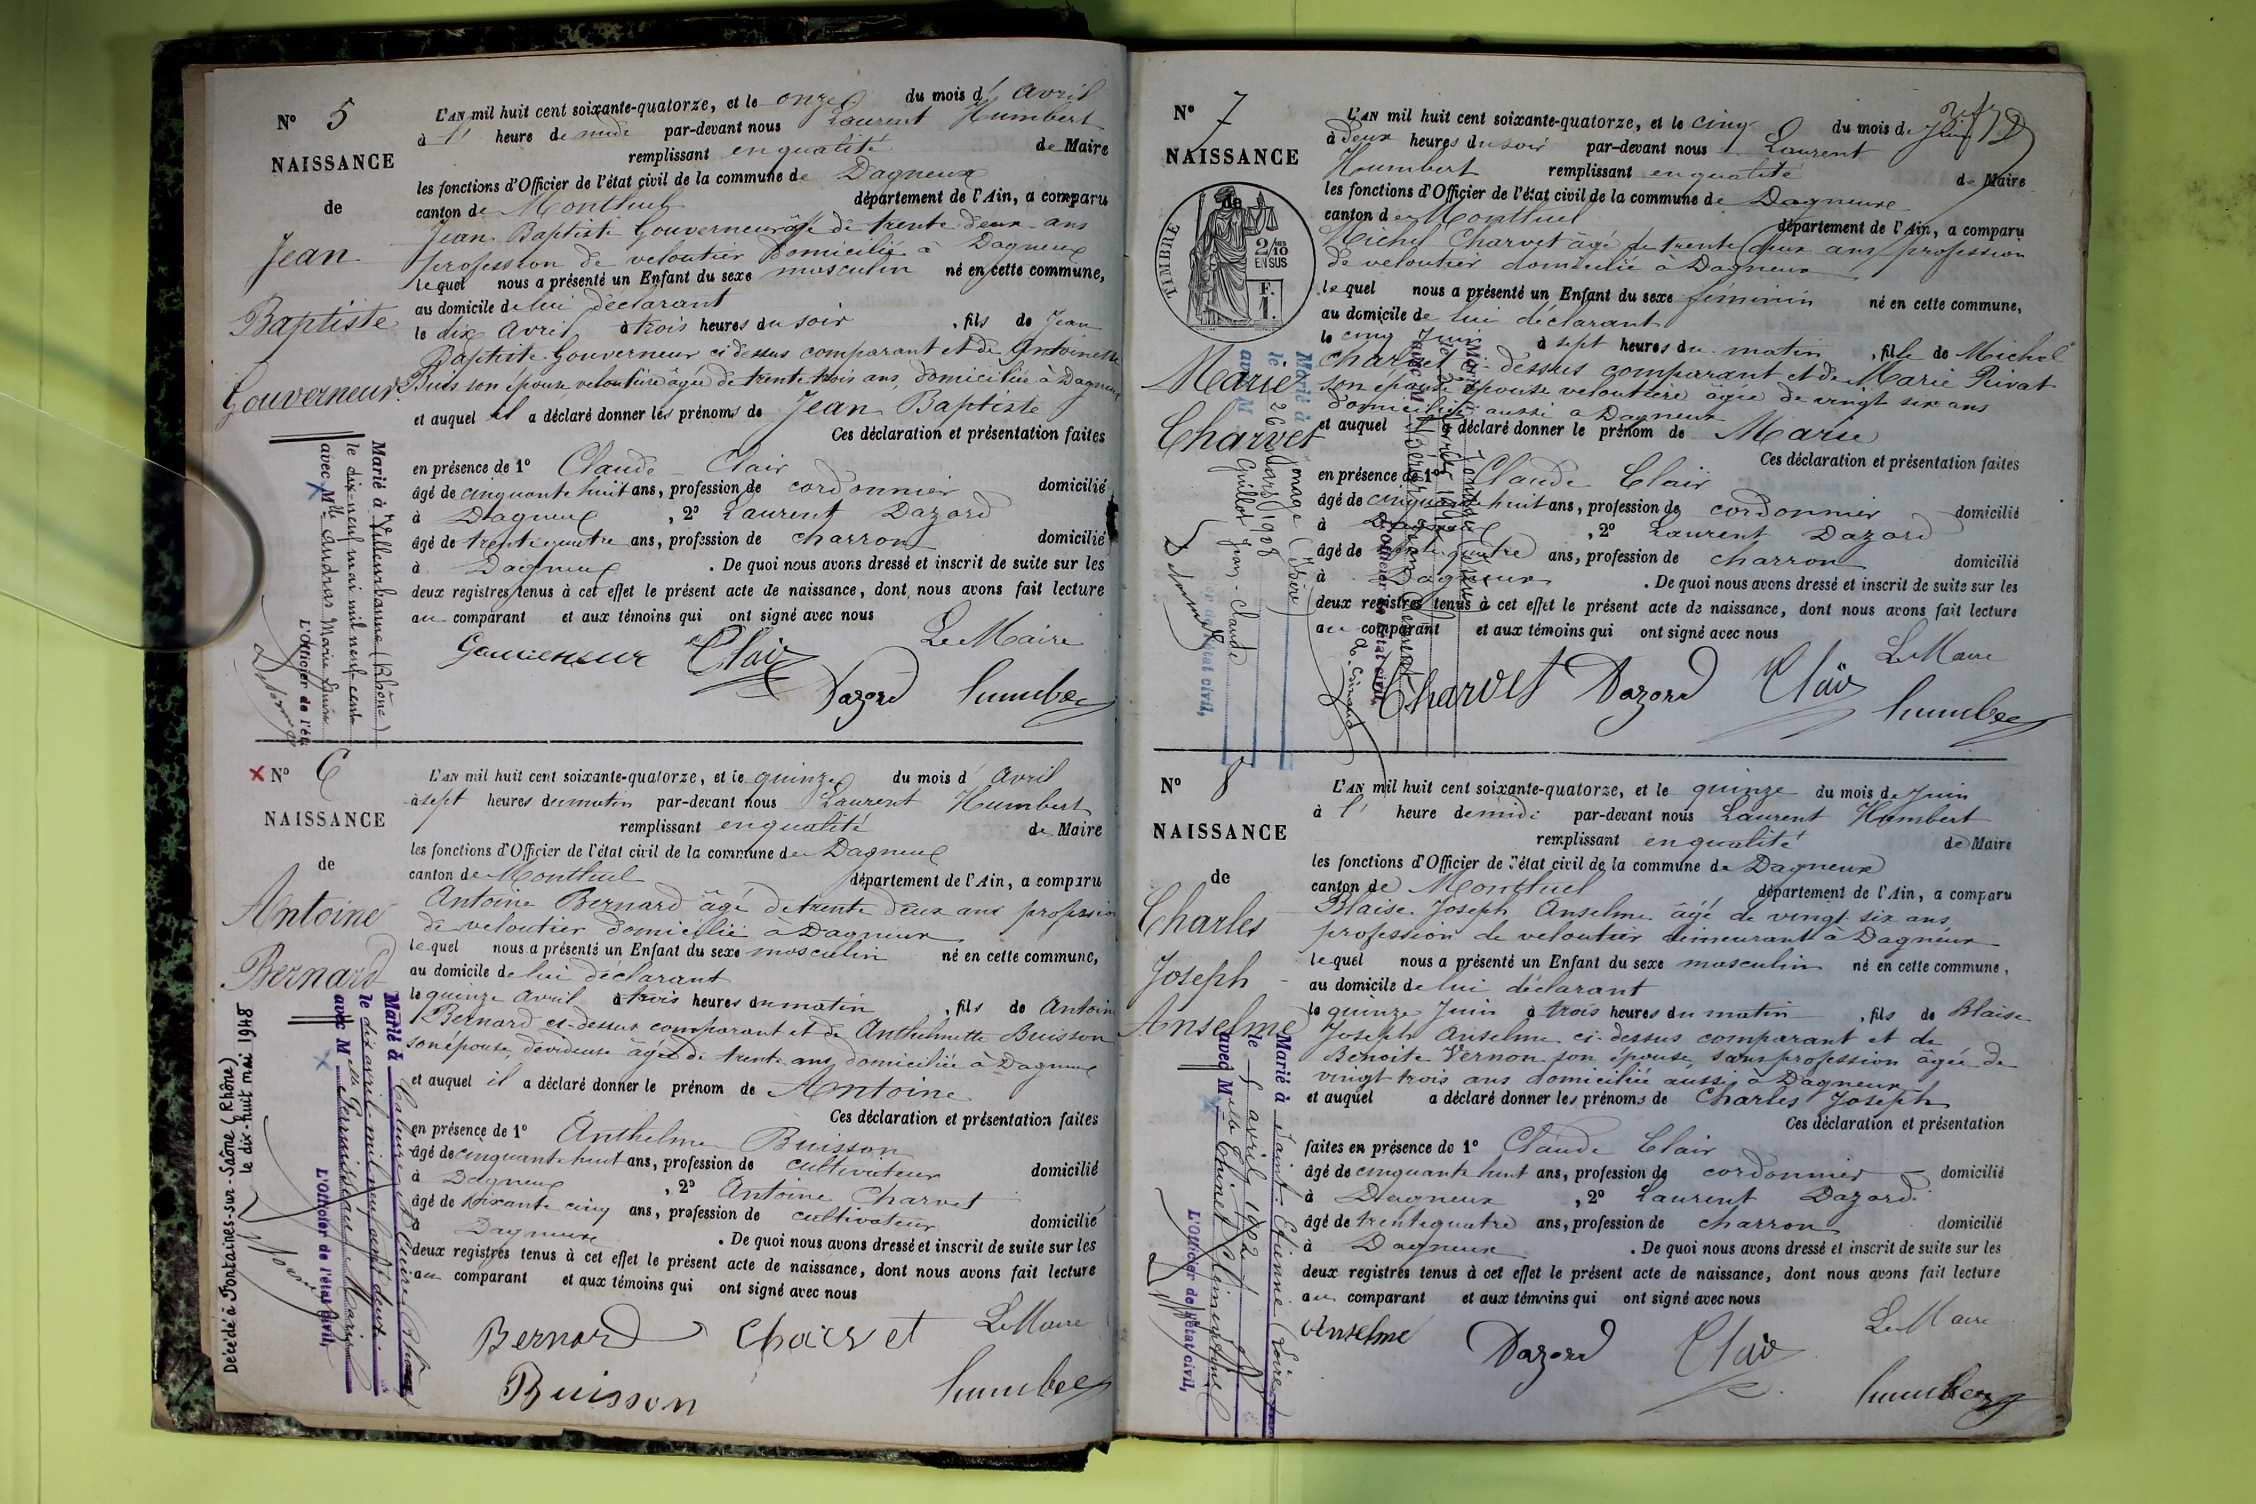 N° 5
NAISSANCE
de
Jean
Baptiste
Gouverneur
L'AN mil huit cent soixante-quatorze, et le onze du mois d' Avril
à l' heure de midi par-devant nous Laurent Humbert
remplissant en qualité de Maire
les fonctions d'Officier de l'état civil de la commune de Dagneux
canton de Montluel département de l'Ain, a comparu
Jean Baptiste Gouverneur âgé de trente deux ans
profession de veloutier domicilié à Dagneux
lequel nous a présenté un Enfant du sexe masculin né en cette commune,
au domicile de lui déclarant
le dix Avril à trois heures du soir , fils de Jean
Baptiste Gouverneur ci dessus comparant et de Antoinette
Buis son épouse, veloutière âgée de trente trois ans, domiciliée à Dagneux
et auquel il a déclaré donner les prénoms de Jean Baptiste
Ces déclaration et présentation faites
en présence de 1° Claude Clair
âgé de cinquante huit ans, profession de cordonnier domicilié
à Dagneux , 2° Laurent Dazord
âgé de trente quatre ans, profession de charron domicilié
à Dagneux . De quoi nous avons dressé et inscrit de suite sur les
deux registres tenus à cet effet le présent acte de naissance, dont nous avons fait lecture
au comparant et aux témoins qui ont signé avec nous
Le Maire
Gouverneur Clair
Dazord Humbert
Marié à Villeurbanne (Rhône)
le dix-neuf mai mil neuf cent
avec Mlle Andras Marie Louise
L'Officier de l'ét
N° 6
NAISSANCE
de
Antoine
Bernard
L'AN mil huit cent soixante-quatorze, et le quinze du mois d' Avril
à sept heures du matin par-devant nous Laurent Humbert
remplissant en qualité de Maire
les fonctions d'Officier de l'état civil de la commune de Dagneux
canton de Montluel département de l'Ain, a comparu
Antoine Bernard âgé de trente deux ans profession
de veloutier domicilié à Dagneux
lequel nous a présenté un Enfant du sexe masculin né en cette commune,
au domicile de lui déclarant
le quinze Avril à trois heures du matin , fils de Antoine
Bernard ci-dessus comparant et de Anthelmette Buisson
son épouse, dévideuse âgée de trente ans, domiciliée à Dagneux
et auquel il a déclaré donner le prénom de Antoine
Ces déclaration et présentation faites
en présence de 1° Anthelme Buisson
âgé de cinquante huit ans, profession de cultivateur domicilié
à Dagneux , 2° Antoine Charvet
âgé de soixante cinq ans, profession de cultivateur domicilié
à Dagneux . De quoi nous avons dressé et inscrit de suite sur les
deux registres tenus à cet effet le présent acte de naissance, dont nous avons fait lecture
au comparant et aux témoins qui ont signé avec nous
Le Maire
Bernard Charvet
Buisson Humbert
Marié à Caluire et Cuire (Rhône)
le dix avril mil neuf cent
avec Mlle Marie
L'Officier de l'état civil,
Décédé à Fontaines-sur-Saône (Rhône)
le dix-huit mai 1948
N° 7
NAISSANCE
de
TIMBRE
2/10
EN SUS
F.
1.
Marie
Charvet
L'AN mil huit cent soixante-quatorze, et le cinq du mois de Juin
à deux heures du soir par-devant nous Laurent
Humbert remplissant en qualité de Maire
les fonctions d'Officier de l'état civil de la commune de Dagneux
canton de Montluel département de l'Ain, a comparu
Michel Charvet âgé de trente deux ans profession
de veloutier domicilié à Dagneux
lequel nous a présenté un Enfant du sexe féminin né en cette commune,
au domicile de lui déclarant
le cinq Juin à sept heures du matin , fille de Michel
Charvet ci-dessus comparant et de Marie Rivat
son épouse veloutière âgée de vingt six ans
domiciliée aussi à Dagneux
et auquel a déclaré donner le prénom de Marie
Ces déclaration et présentation faites
en présence de 1° Claude Clair
âgé de cinquante huit ans, profession de cordonnier domicilié
à Dagneux , 2° Laurent Dazord
âgé de trente quatre ans, profession de charron domicilié
à Dagneux . De quoi nous avons dressé et inscrit de suite sur les
deux registres tenus à cet effet le présent acte de naissance, dont nous avons fait lecture
au comparant et aux témoins qui ont signé avec nous
Le Maire
Charvet Dazord Clair
Humbert
Marié à Jonage (Isère)
le 26 Mars 1908
avec M Guillot Jean-Claude
état civil,
N° 8
NAISSANCE
de
Charles
Joseph
Anselme
L'AN mil huit cent soixante-quatorze, et le quinze du mois de Juin
à l' heure de midi par-devant nous Laurent Humbert
remplissant en qualité de Maire
les fonctions d'Officier de l'état civil de la commune de Dagneux
canton de Montluel département de l'Ain, a comparu
Blaise Joseph Anselme âgé de vingt six ans
profession de veloutier demeurant à Dagneux
lequel nous a présenté un Enfant du sexe masculin né en cette commune,
au domicile de lui déclarant
le quinze Juin à trois heures du matin , fils de Blaise
Joseph Anselme ci-dessus comparant et de
Benoite Vernon son épouse, sans profession âgée de
vingt trois ans domiciliée aussi à Dagneux
et auquel a déclaré donner les prénoms de Charles Joseph
Ces déclaration et présentation
faites en présence de 1° Claude Clair
âgé de cinquante huit ans, profession de cordonnier domicilié
à Dagneux , 2° Laurent Dazord
âgé de trente quatre ans, profession de charron domicilié
à Dagneux . De quoi nous avons dressé et inscrit de suite sur les
deux registres tenus à cet effet le présent acte de naissance, dont nous avons fait lecture
au comparant et aux témoins qui ont signé avec nous
Le Maire
Anselme Dazord Clair
Humbert
Marié à Saint-Etienne (Loire)
le avril 1902
avec Mlle
L'Officier de l'état civil,